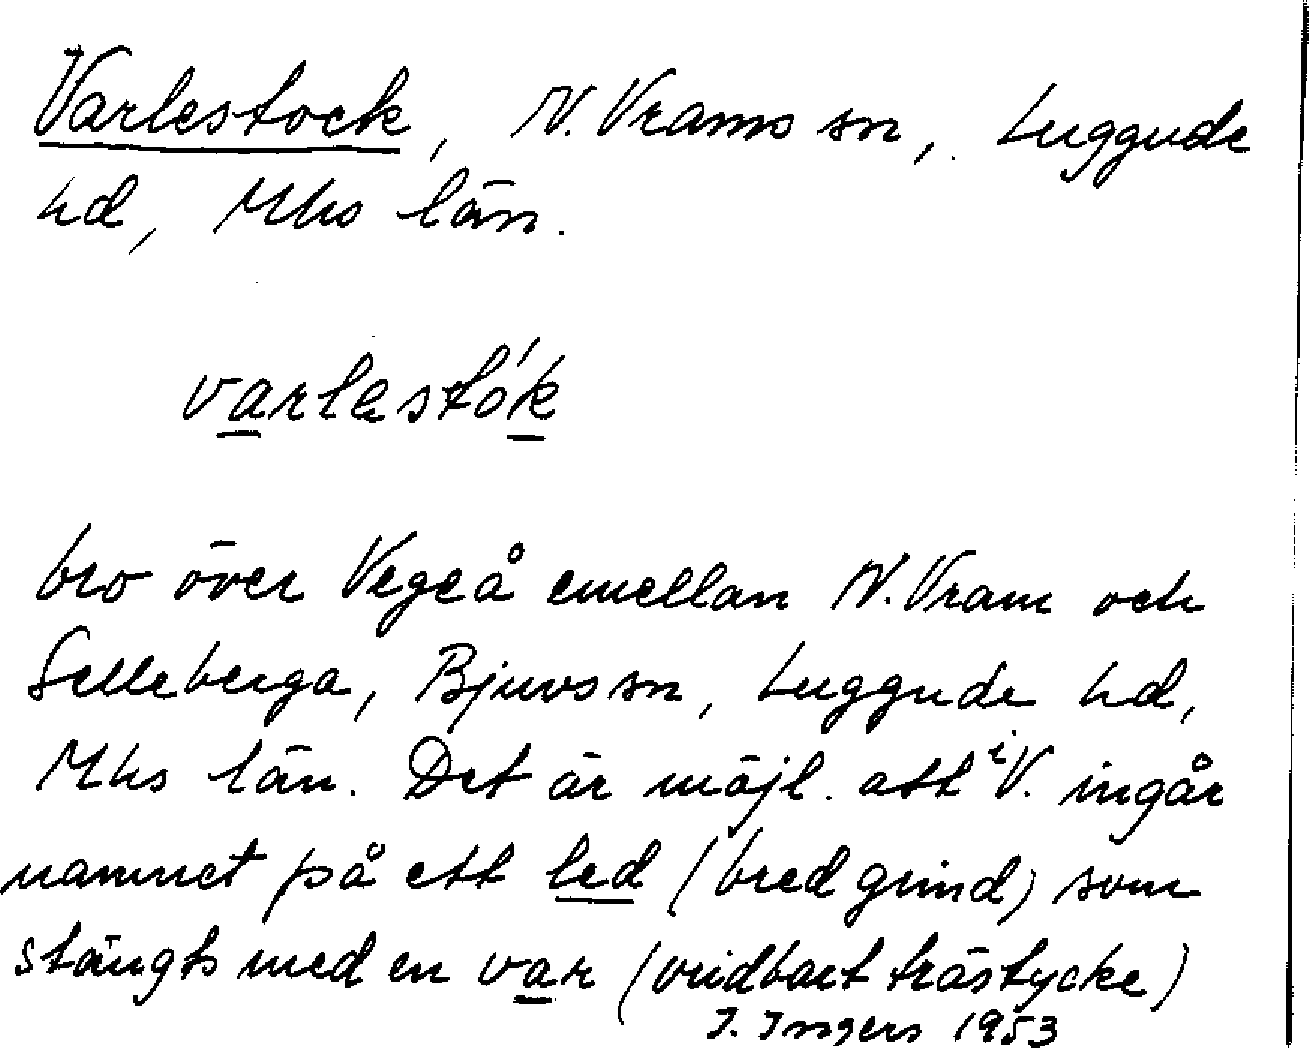 Varlestock, N. Vrams sn, Luggude
hd, Mhs län.
varlestók
bro över Vegeå emellan N. Vram och
Selleberga, Bjuvs sn, Luggude hd,
Mhs län. Det är möjl. att i V. ingår
namnet på ett led (bred grind) som
stängts med en var (vridbart trästycke)
I. Ingers 1953